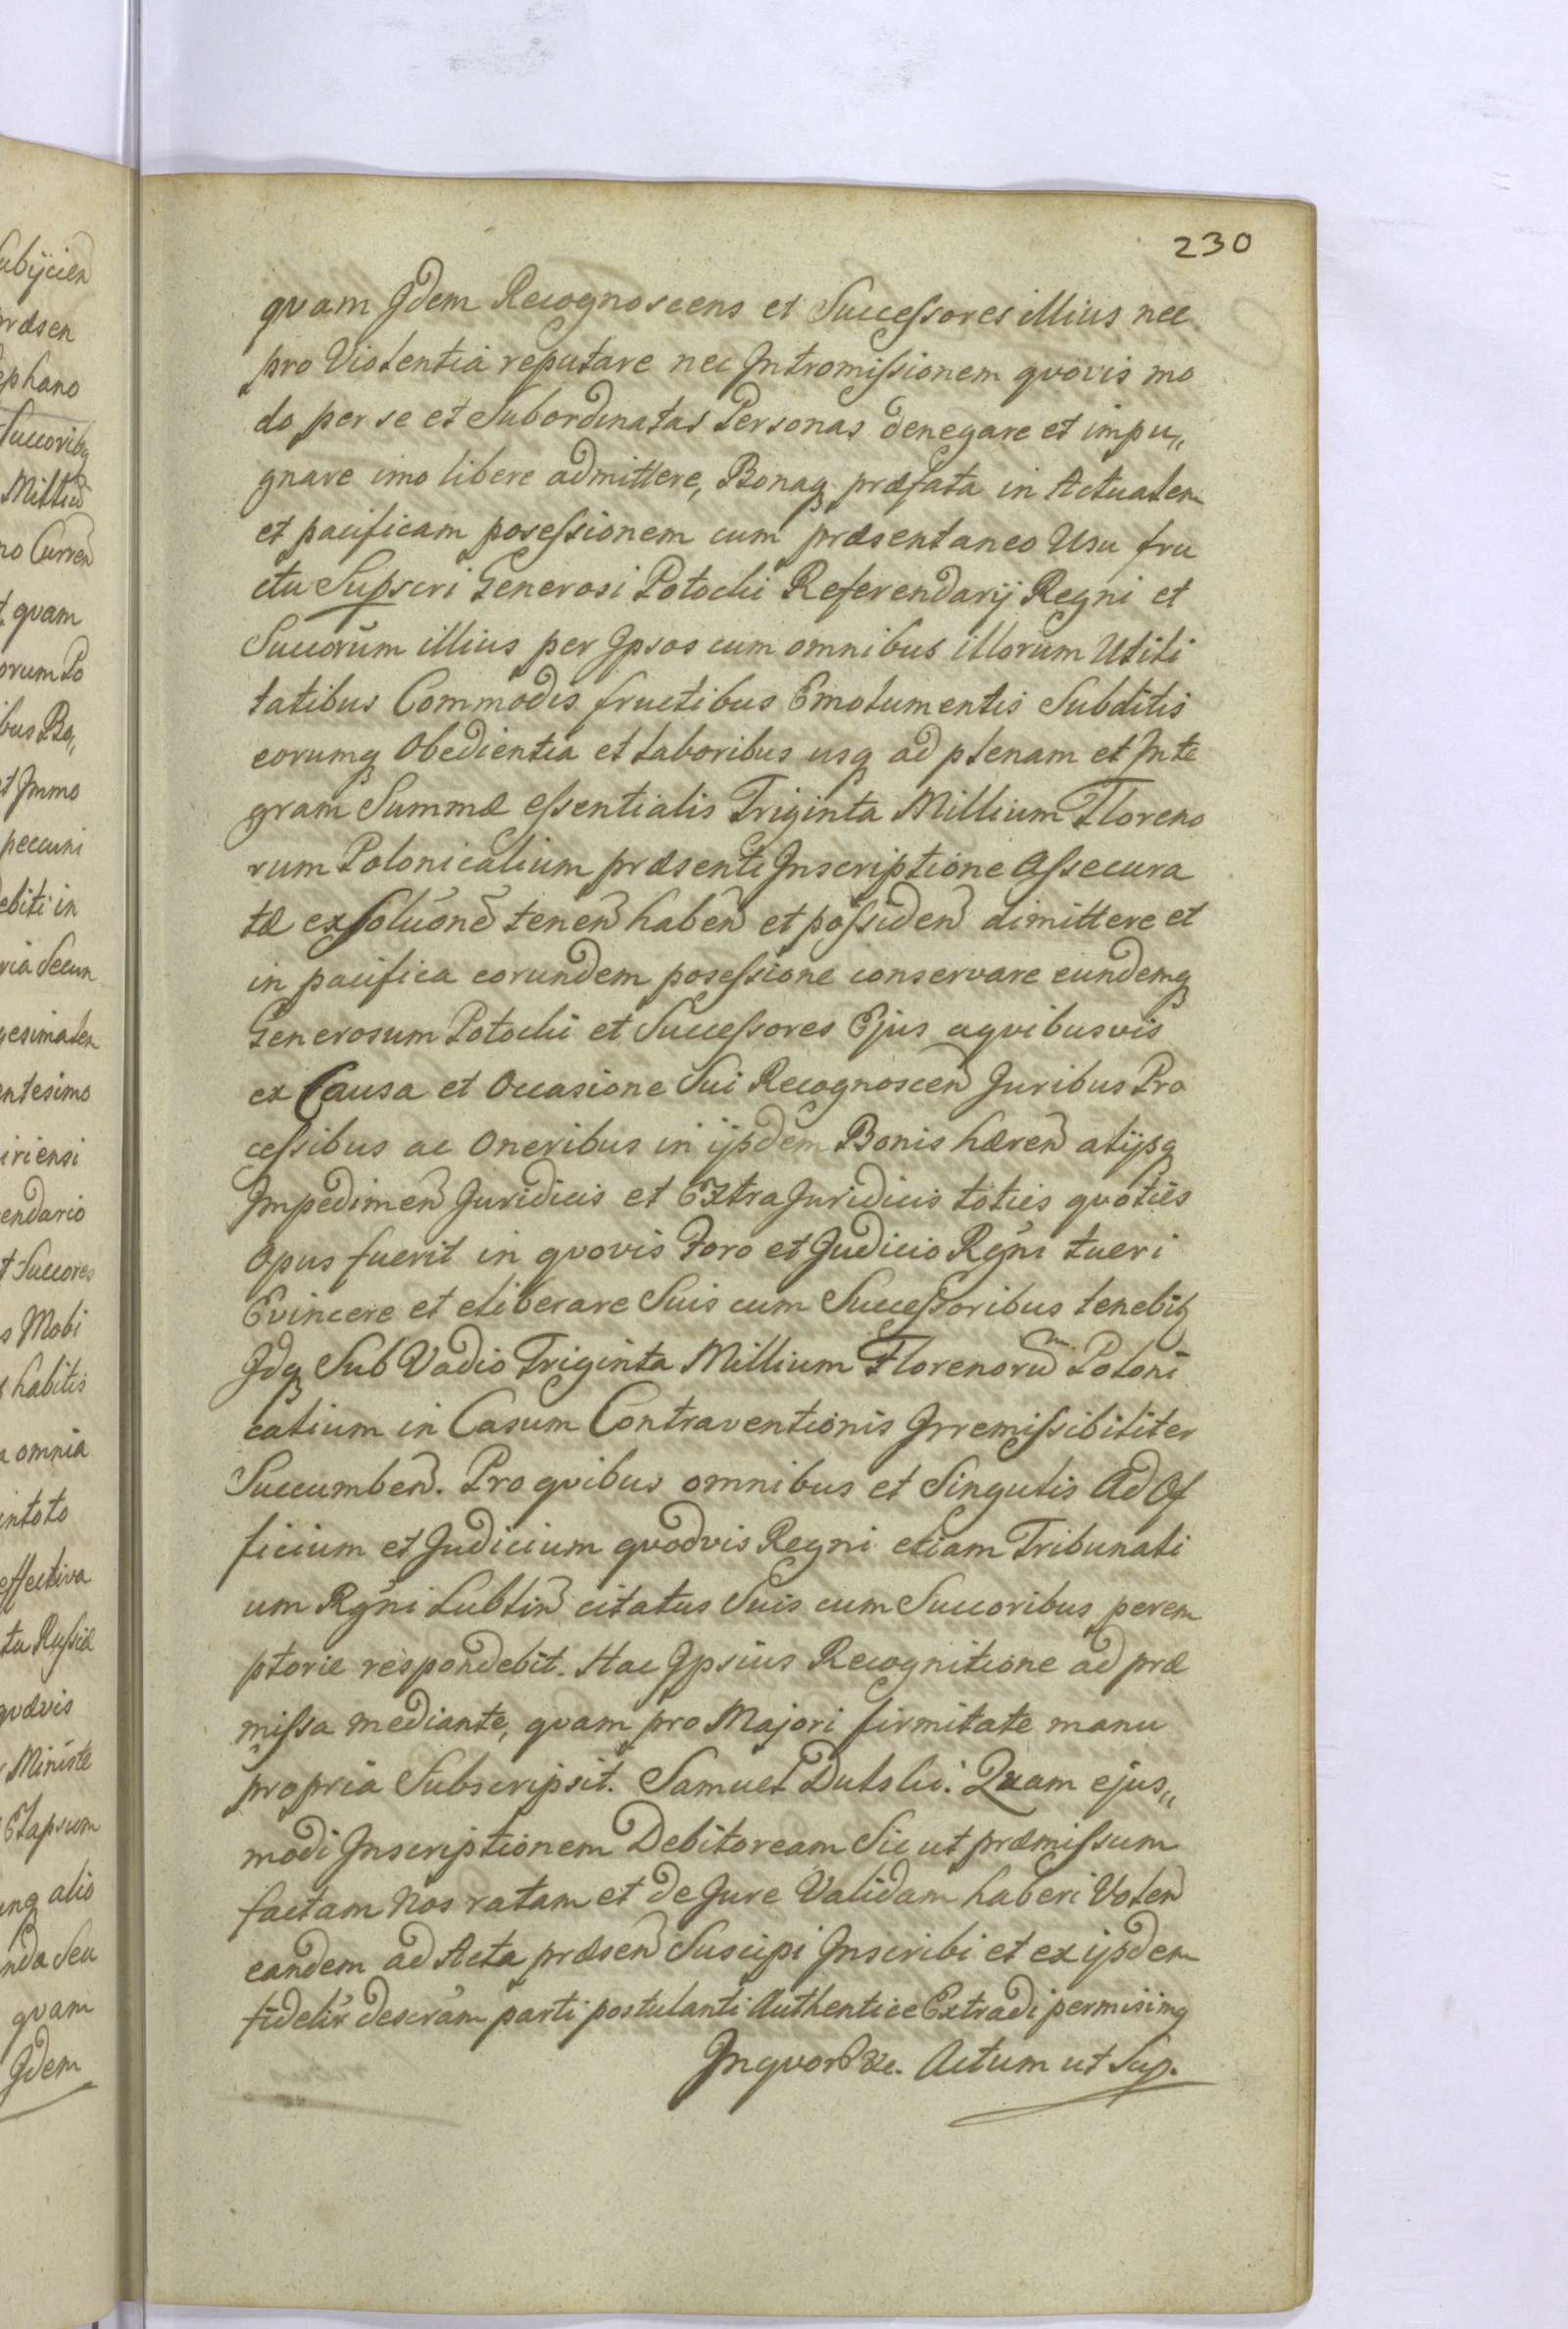 230
quam Idem Recognoscens et Successores illius nec
pro Violentia reputare nec Intromissionem quovis mo
do per se et Subordinatas Personas denegare et impu„
gnare imo libere admittere, Bonaq̃ præfata in Actualem
et pacificam posessionem cum præsentaneo Usu fru
ctu Supscri Generosi Potocki Referendarij Regni et
Succorum illius per Ipsos cum omnibus illorum Utili
tatibus Commodis fructibus Emolumentis Subditis
eorumq̃ Obedientia et laboribus usq̃ ad plenam et Inte
gram Summæ essentialis Triginta Millium Floreno
rum Polonicalium præsenti Inscriptione Assecura
tæ exsoluōnē tenen̄ haben̄ et possiden̄ dimittere et
in pacifica eorundem posessione conservare eundemq̃
Generosum Potocki et Successores Ejus aquibusvis
ex Causa et Occasione Sui Recognoscen̄ Juribus Pro
cessibus ac Oneribus in ijsdem Bonis hæren̄ alijsq̃
Impedimen̄ Juridicis et Extra Juridicis toties quoties
Opus fuerit in quovis Foro et Judicio Rgni tueri
Evincere et eliberare Suis cum Successoribus tenebitq̃
Idq̃ Sub Vadio Triginta Millium Florenorum Poloni
calium in Casum Contraventionis Irremissibiliter
Succumben̄. Pro quibus omnibus et Singulis Ad Of
ficium et Judicium quodvis Regni etiam Tribunali
um Rgni Lublin̄ citatus Suis cum Succoribus perem
ptorie respondebit. Hac Ipsius Recognitione ad præ
missa mediante, quam pro Majori firmitate manu
propria Subscripsit. Samuel Dulski. Quam ejus„
modi Inscriptionem Debitoream Sic ut præmissum
factam Nos ratam et de Jure Validam haberi Volen̄
eandem ad Acta præsen̄ Suscipi Inscribi et ex ijsdem
fidelir descram parti postulanti Authentice Extradi permisimq̃
Inquor̄ &c. Actum ut Sup.